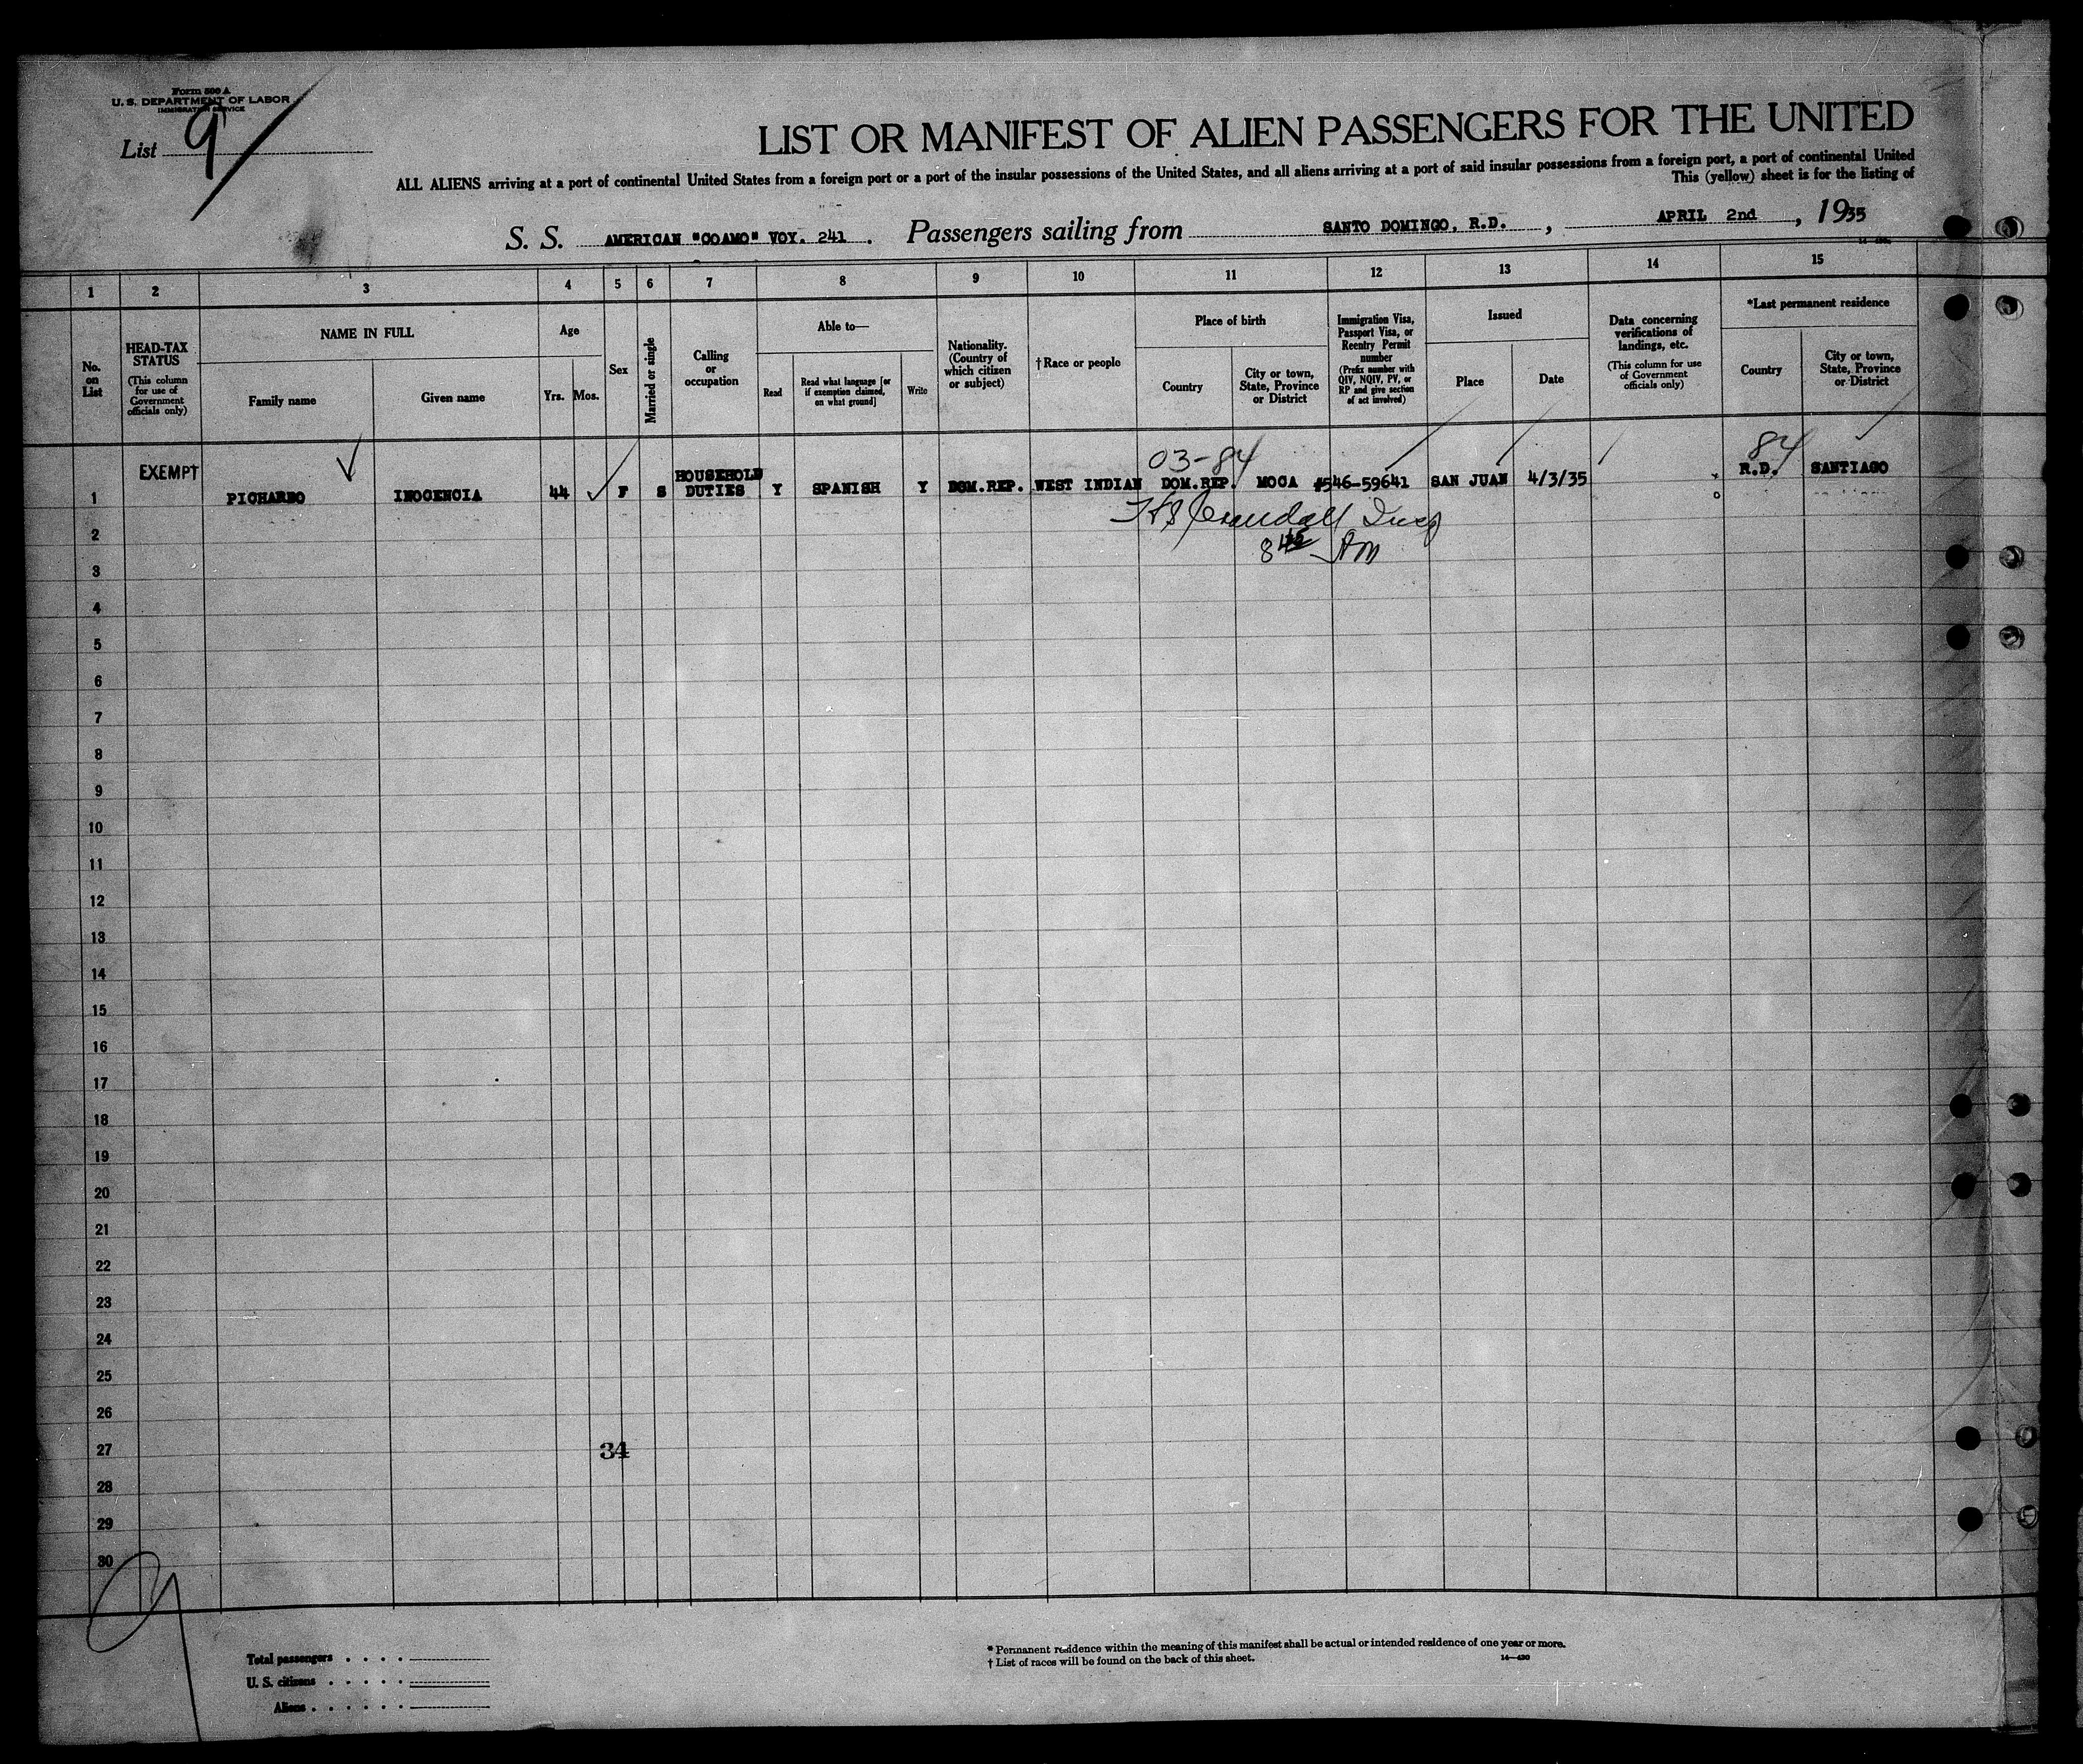 Form 500 A
U. S. DEPARTMENT OF LABOR
IMMIGRATION SERVICE
List 9
LIST OR MANIFEST OF ALIEN PASSENGERS FOR THE UNITED
ALL ALIENS arriving at a port of continental United States from a foreign port or a port of the insular possessions of the United States, and all aliens arriving at a port of said insular possessions from a foreign port, a port of continental United
This (yellow) sheet is for the listing of
S. S. AMERICAN "COAMO" VOY. 241. Passengers sailing from SANTO DOMINGO, R.D., APRIL 2nd, 1935
1 2 3 4 5 6 7 8 9 10 11 12 13 14 15
No. on List
HEAD-TAX STATUS
(This column for use of Government officials only)
NAME IN FULL
Family name
Given name
Age
Yrs. Mos.
Sex
Married or single
Calling or occupation
Able to—
Read
Read what language [or if exemption claimed, on what ground]
Write
Nationality. (Country of which citizen or subject)
†Race or people
Place of birth
Country
City or town, State, Province or District
Immigration Visa, Passport Visa, or Reentry Permit number
(Prefix number with QIV, NQIV, PV, or RP and give section of act involved)
Issued
Place
Date
Data concerning verifications of landings, etc.
(This column for use of Government officials only)
*Last permanent residence
Country
City or town, State, Province or District
03-84 84
1 EXEMPT PICHARDO INOCENCIA 44 F S HOUSEHOLD DUTIES Y SPANISH Y DOM.REP. WEST INDIAN DOM.REP. MOCA #546-59641 SAN JUAN 4/3/35 R.D. SANTIAGO
Crandall Insp
2
8 45 AM
3
4
5
6
7
8
9
10
11
12
13
14
15
16
17
18
19
20
21
22
23
24
25
26
27 34
28
29
30
9
Total passengers
U. S. citizens
Aliens
* Permanent residence within the meaning of this manifest shall be actual or intended residence of one year or more.
† List of races will be found on the back of this sheet.
14—430